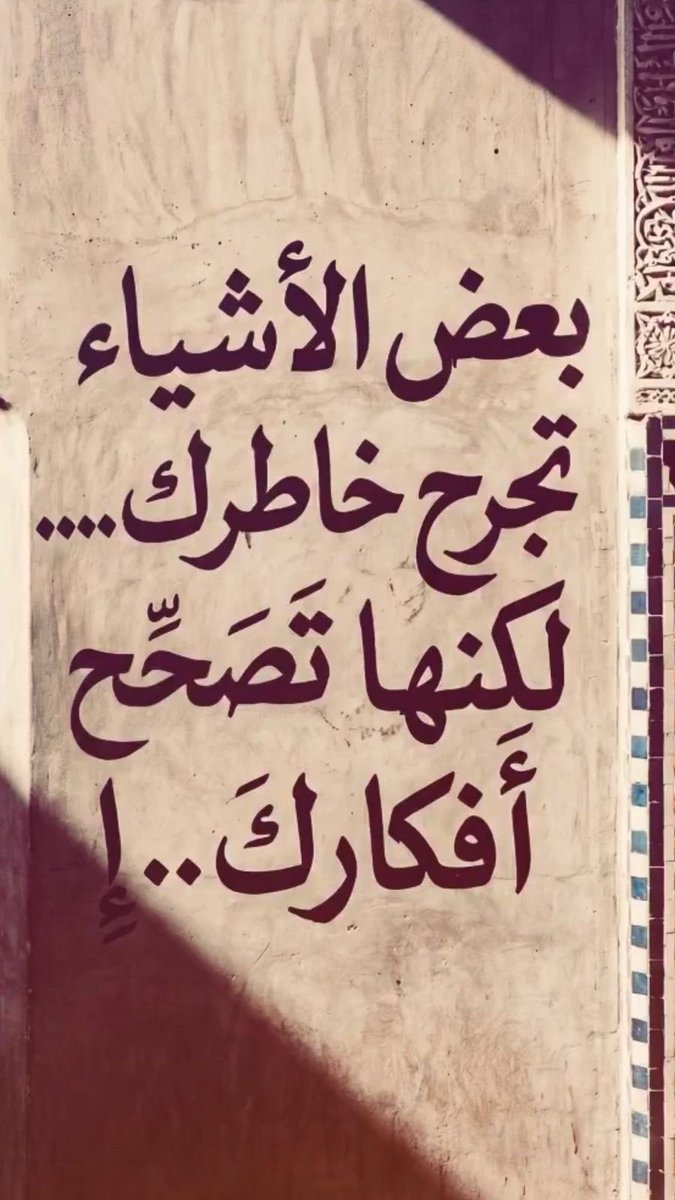 بعض الأشياء
تجرح خاطرك....
لكِنها تَصَحِّح
أَفكاركَ..إِ